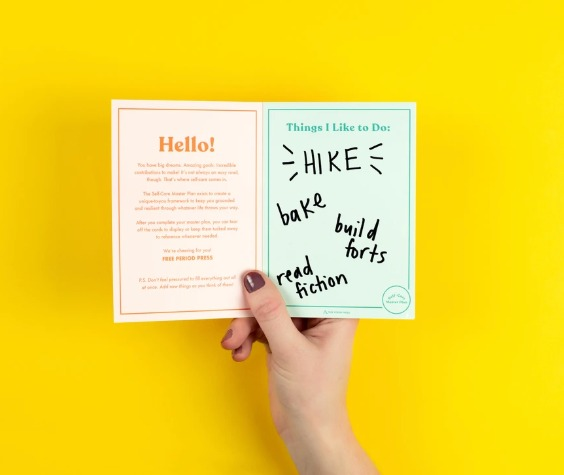 Hello!
You have big dreams. Amazing goals. Incredible
contributions to make! It's not always an easy road,
though. That's where self-care comes in.
The Self-Care Master Plan exists to create a
framework to keep you grounded
and resilient through whatever life throws your way.
After you complete your master plan, you can tear
off the cards to display or keep them tucked away
to reference whenever needed.
We're cheering for you!
FREE PERIOD PRESS
P.S. Don't feel pressured to fill everything out all
at once. Add new things as you think of them!
Things I Like to Do:
HIKE
bake
build
forts
read
fiction